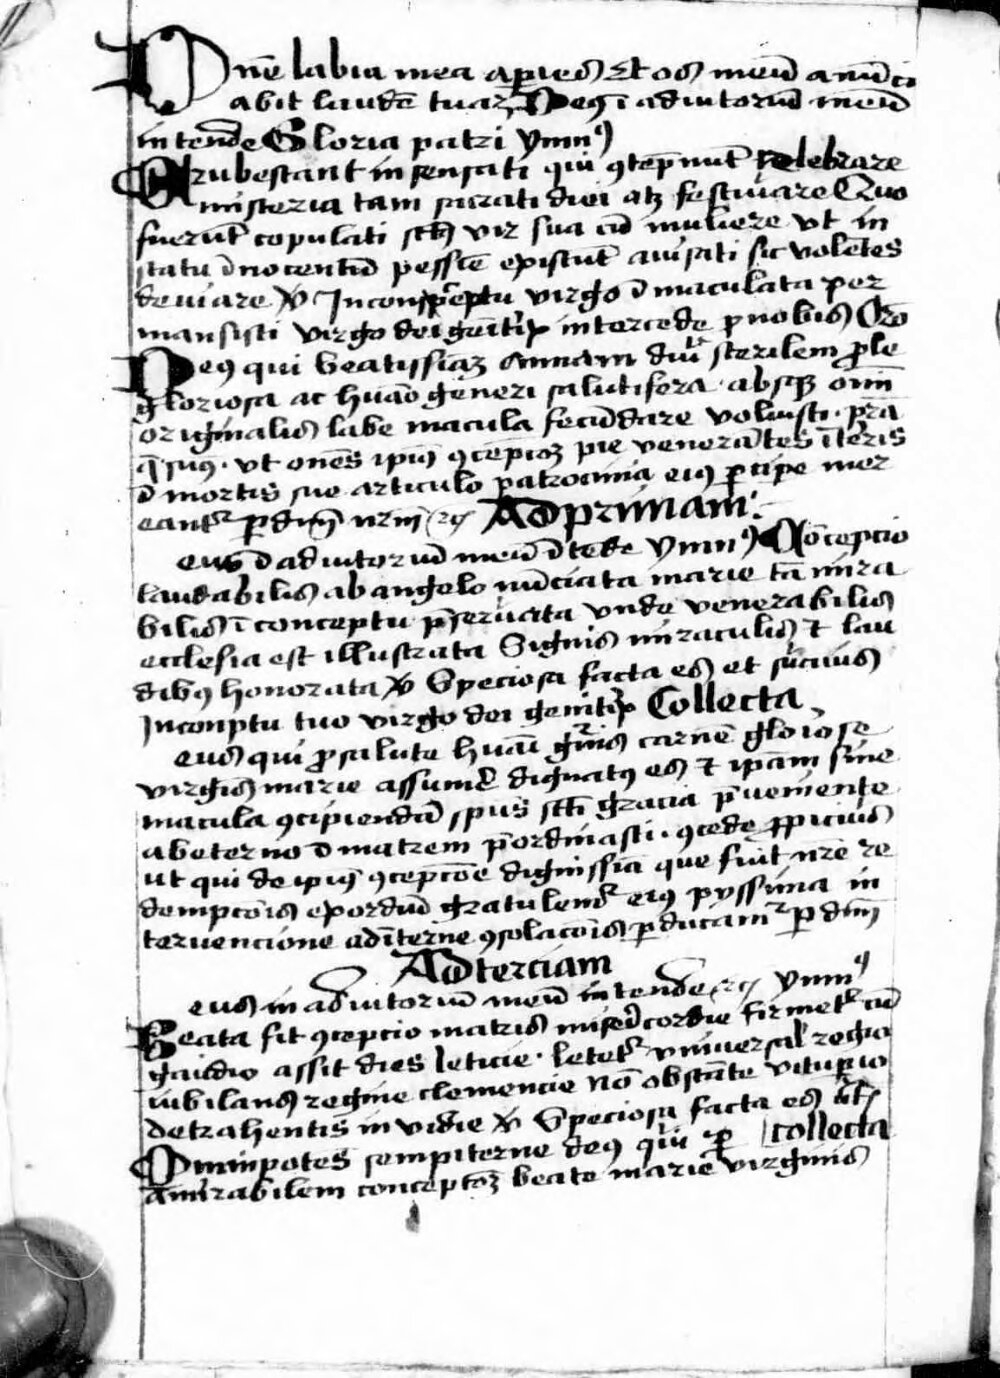 Dñe labia mea aperies Et os meũ anũci
abit laudẽ tuaꝫ Deꝰ ĩ adiutoriũ meũ
intende Gloria patri ymnꝰ
Erubescant insensati qui ꝯtẽpnũt celebrare
misteria tam sacrati diei atꝫ festiuare Quo
fuerũt copulati sctī vir sua cũ muliere vt in
statu ĩnocentiũ possẽt existũt auisati sic volẽtes
deuiare ℣ In conceptu virgo ĩmaculata per
mansisti virgo dei geitⁱx intercede ꝓ nobis Orõ
Deꝰ qui beatissimaꝫ Annam diu sterilem ꝓle
gloriosa ac huão generi salutifera absqꝫ oim̃
originalis labe macula fecũdare voluisti p̃ta
q̃sumꝰ vt om̃es ipiꝰ ꝯcepcioꝫ pie venerãtes ĩ teris
ĩ mortis sue articulo patrocinia eiꝰ ꝑcipe mer
eant᷑ ꝑ dñm nrm̃ ⁊c Ad primam
eus ĩ adiutoriũ meũ ĩtẽde ymnꝰ Cõcepcio
laudabilis ab angelo nũciata marie tã mira
bilis ĩ conceptu p̃seruata vnde venerabilis
ecclesia est illustrata Signis miraculis ⁊ lau
dibꝰ honorata ℣ Speciosa facta es et suauis
In conptu tuo virgo dei genitⁱx Collecta
eus qui ꝓ salute huãi gñis carnẽ gloiose
virgĩs marie assumẽ dignatꝰ es ⁊ ipam sine
macula ꝯcipiendã spũs sctī gracia p̃ueniente
ab eterno ĩ matrem p̃ordinasti ꝯcede ꝓpicius
ut qui de ipiꝰ ꝯcepcõe dignissiã que fuit nr̃e re
dempcõis exordiũ gratulem᷑ eiꝰ pyssima in
teruencione ad ĩterne ꝯsolacõis ꝑducam᷑ ꝑ dñm
Ad terciam
eus in adiutoriũ meũ intende ⁊c ymnꝰ
Beata sit ꝯcepcio matris misericordie firmet᷑ cũ
gaudio assit dies leticie letet᷑ vniuersal regia
iubilans regine clemencie nõ obstãte vitupio
detrahentis inuidie ℣ Speciosa facta es
Omnipotẽs sempiterne deꝰ qui ꝑ collecta
amirabilem conceptoꝫ beate marie virginis